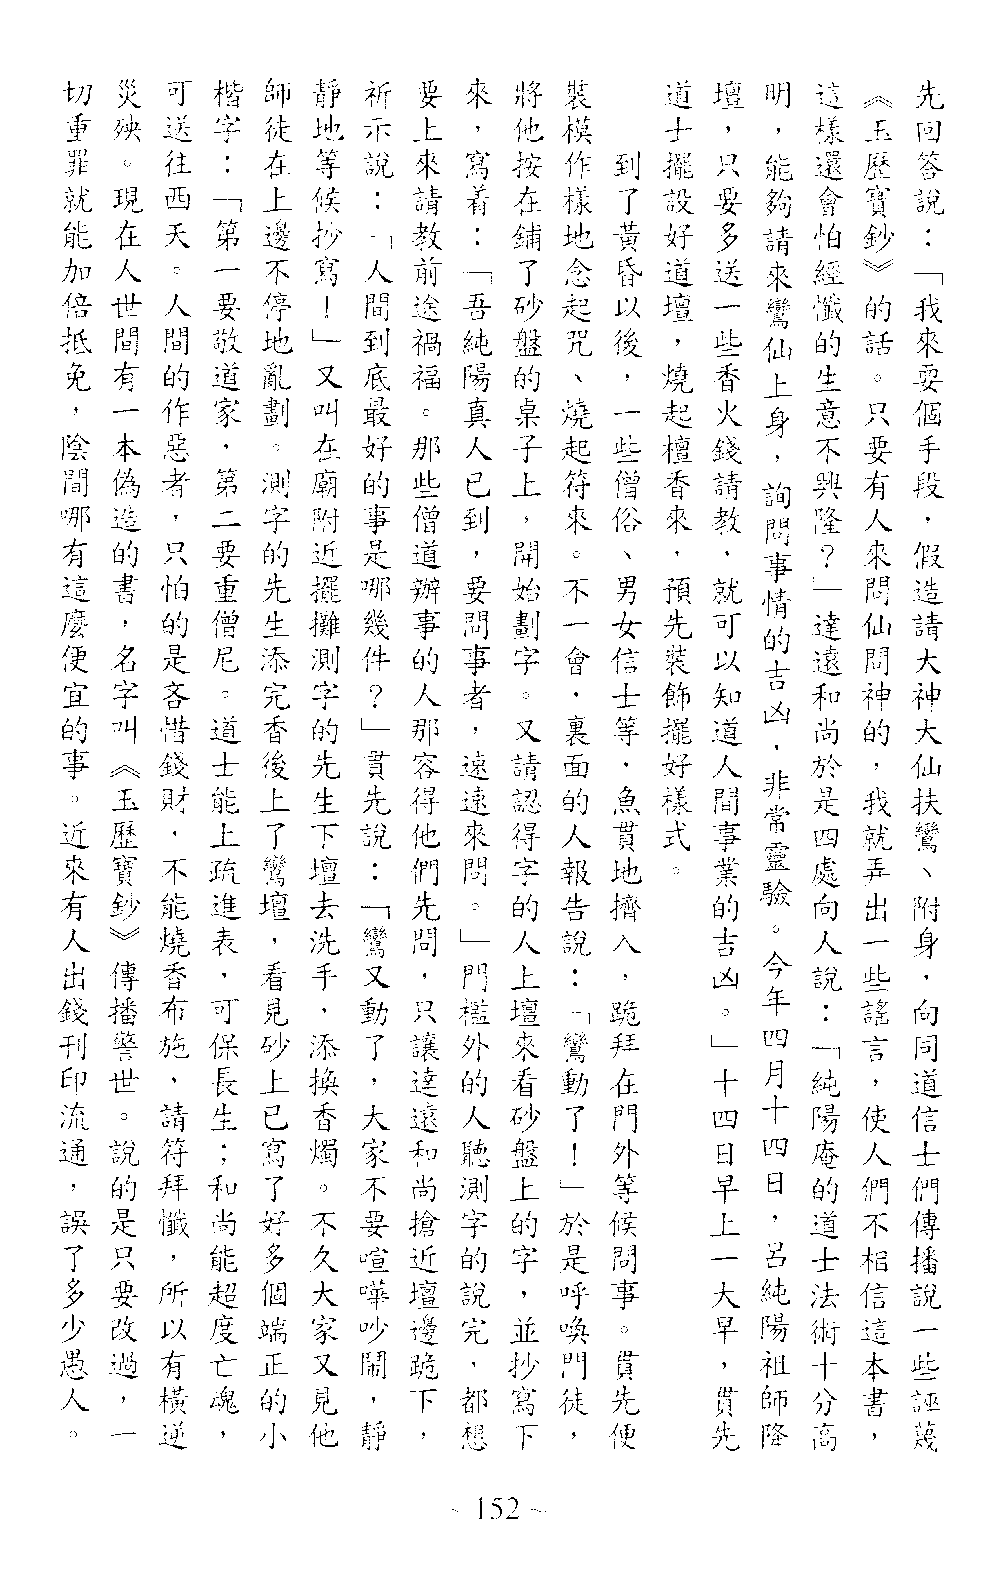 先回答說：「我來耍個手段，假造請大神大仙扶鸞、附身，向同道信士們傳播說一些誣蔑
《玉歷寶鈔》的話。只要有人來問仙問神的，我就弄出一些謠言，使人們不相信這本書，
這樣還會怕經懺的生意不興隆？」達遠和尚於是四處向人說：「純陽庵的道士法術十分高
明，能夠請來鸞仙上身，詢問事情的吉凶，非常靈驗。今年四月十四日，呂純陽祖師降
壇，只要多送一些香火錢請教，就可以知道人間事業的吉凶。」十四日早上一大早，貫先
道士擺設好道壇，燒起檀香來，預先裝飾擺好樣式。
到了黃昏以後，一些僧俗、男女信士等，魚貫地擠入，跪拜在門外等候問事。貫先便
裝模作樣地念起咒、燒起符來。不一會，裏面的人報告說：「鸞動了！」於是呼喚門徒，
將他按在鋪了砂盤的桌子上，開始劃字。又請認得字的人上壇來看砂盤上的字，並抄寫下
來，寫着：「吾純陽真人已到，要問事者，速速來問。」門檻外的人聽測字的說完，都想
要上來請教前途禍福。那些僧道辦事的人那容得他們先問，只讓達遠和尚搶近壇邊跪下，
祈示說：「人間到底最好的事是哪幾件？」貫先說：「鸞又動了，大家不要喧嘩吵鬧，靜
靜地等候抄寫！」又叫在廟附近擺攤測字的先生下壇去洗手，添換香燭。不久大家又見他
師徒在上邊不停地亂劃。測字的先生添完香後上了鸞壇，看見砂上已寫了好多個端正的小
楷字：「第一要敬道家，第二要重僧尼。道士能上疏進表，可保長生；和尚能超度亡魂，
可送往西天。人間的作惡者，只怕的是吝惜錢財，不能燒香布施，請符拜懺，所以有橫逆
災殃。現在人世間有一本偽造的書，名字叫《玉歷寶鈔》傳播警世。說的是只要改過，一
切重罪就能加倍抵免，陰間哪有這麼便宜的事。近來有人出錢刊印流通，誤了多少愚人。
~ 152 ~